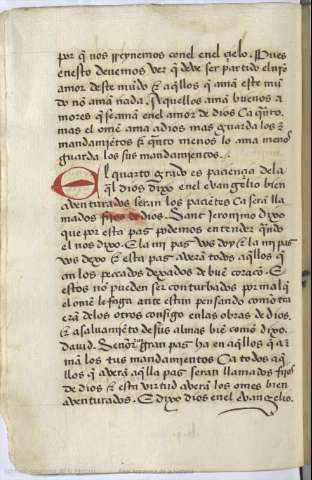 por q̃ nos rreynemos con el en el çielo. Pues
en esto deuemos ver q̃ deue ser partido el nr̃o
amor deste mũdo & aq̃llos q̃ amã este mũ
do nõ amã nada. Aquellos amã buenos a
mores q̃ se amã en el amor de dios Ca q̃nto
mas el ome ama a dios mas guarda los
mandamiẽtos & q̃nto menos lo ama meno
guarda los sus mandamientos.
El quarto grado es paciençia de la
q̃l dios dixo en el euangelio bien
auenturados seran los paciẽtes Ca serã lla
mados fijos de dios. Sant Jeronimo dixo
que por esta paz podemos entender q̃ndo
el nos dixo. E la mi paz vos doy & la mi paz
vos dexo & esta paz auerã todos aq̃llos q̃
an los peccados dexados de buẽ coraçõ. E
estos nõ pueden ser conturbados por mal q̃
el ome le faga ante estan pensando como
de los otros consigo en las obras de dios.
& a saluamiẽto de sus almas biẽ como dixo.
dauid. Señor gran paz ha en aq̃llos q̃ a
mã los tus mandamientos Ca todos aq̃
llos q̃ auerã aq̃lla paz serati llamados fijos
de dios & esta virtud auerã los omes bien
auenturados. E dixo dios en el euangelio.